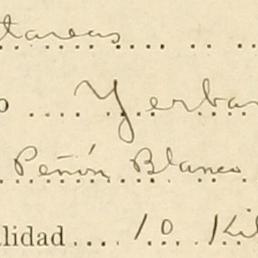 tareas
o .... Yerba
Peñón Blanco
alidad .... 10 Kil